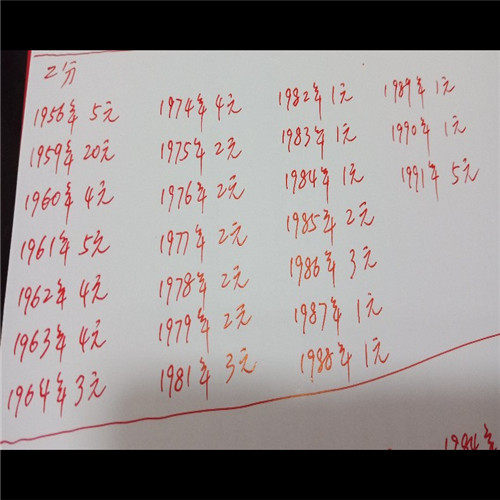 2分
1956年 5元
1959年 20元
1960年 4元
1961年 5元
1962年 4元
1963年 4元
1964年 3元
1974年 4元
1975年 2元
1976年 2元
1977年 2元
1978年 2元
1979年 2元
1981年 3元
1982年 1元
1983年 1元
1984年 1元
1985年 2元
1986年 3元
1987年 1元
1988年 1元
1989年 1元
1990年 1元
1991年 5元
1984年